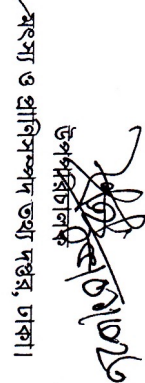 উপপরিচালক
মৎস্য ও প্রাণিসম্পদ তথ্য দপ্তর, ঢাকা।